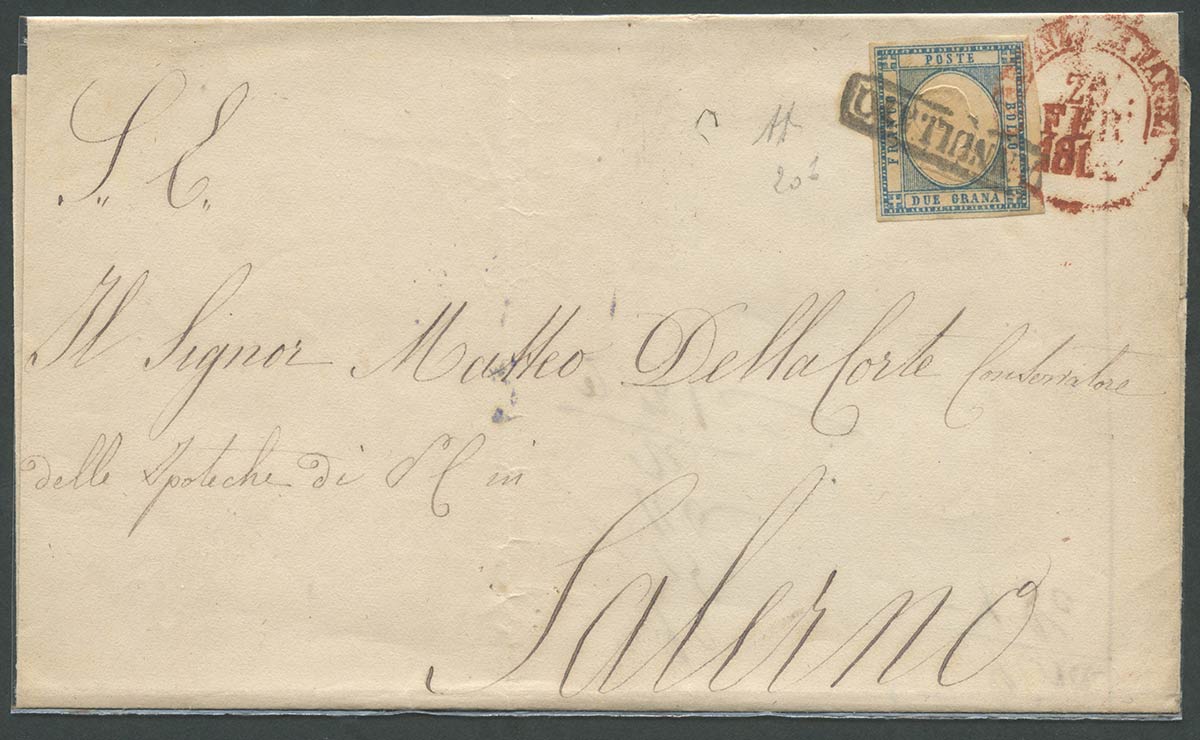 POSTE
FRANCO
BOLLO
DUE GRANA
ANNULLATO
FEB
S. E.
Il Signor Matteo Della Corte Conservatore
delle Ipoteche di S C in
Salerno